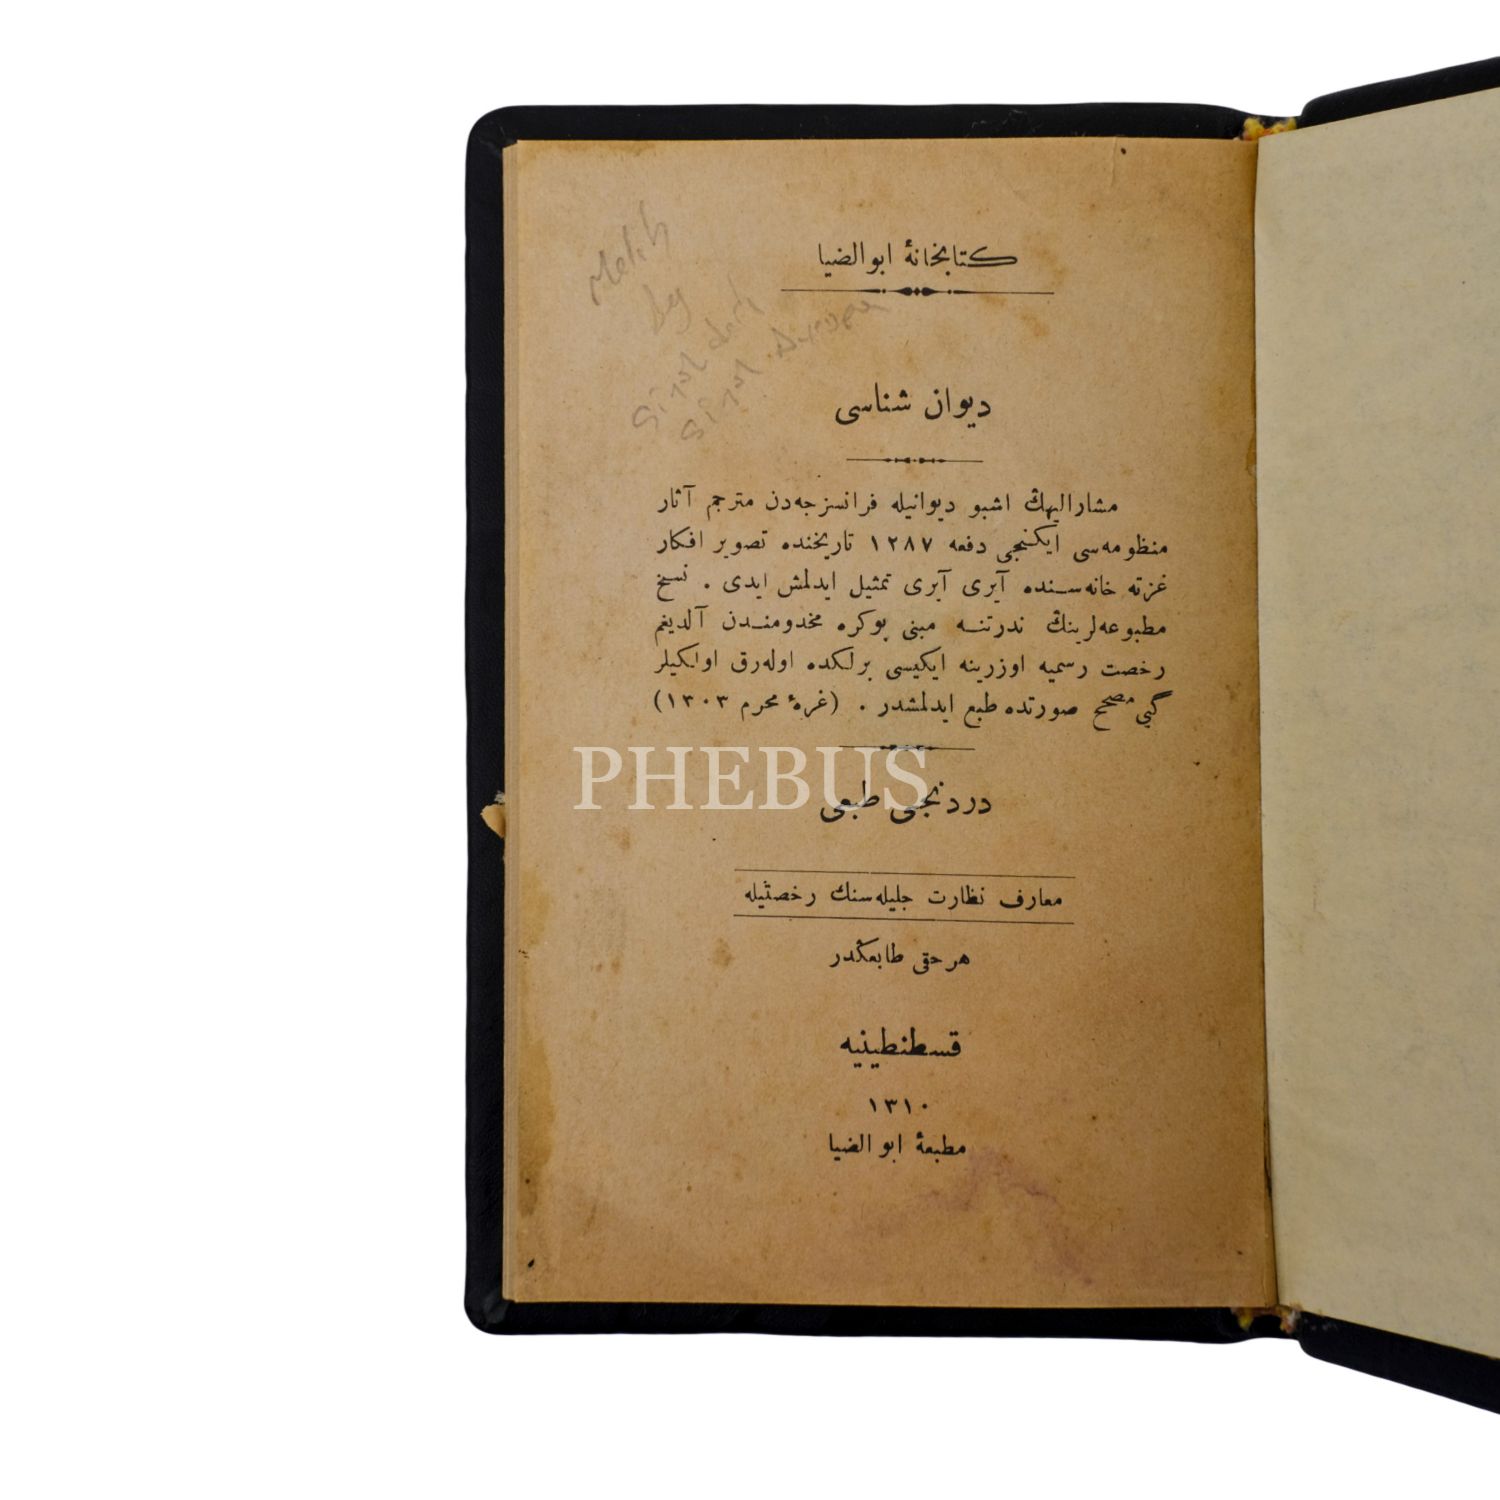 كتابخانهٔ ابوالضيا
ديوان شناسى
مشاراليهڭ اشبو ديوانيله فرانسزجه‌دن مترجم آثار
منظومه‌سى ايكنجى دفعه ١٢٨٧ تاريخنده تصوير افكار
غزته خانه‌سنده آيرى آيرى تمثيل ايدلمش ايدى . نسخ
مطبوعه‌لرينڭ ندرتنه مبنى بوكره مخدومندن آلديغم
رخصت رسميه اوزرينه ايكيسى برلكده اوله‌رق اولكيلر
گبى مصحح صورتده طبع ايدلمشدر . (غرهٔ محرم ١٣٠٣)
PHEBUS
دردنجى طبعى
معارف نظارت جليله‌سنك رخصتيله
هر حقى طابعڭدر
قسطنطينيه
١٣١٠
مطبعهٔ ابوالضيا
Melih
bey